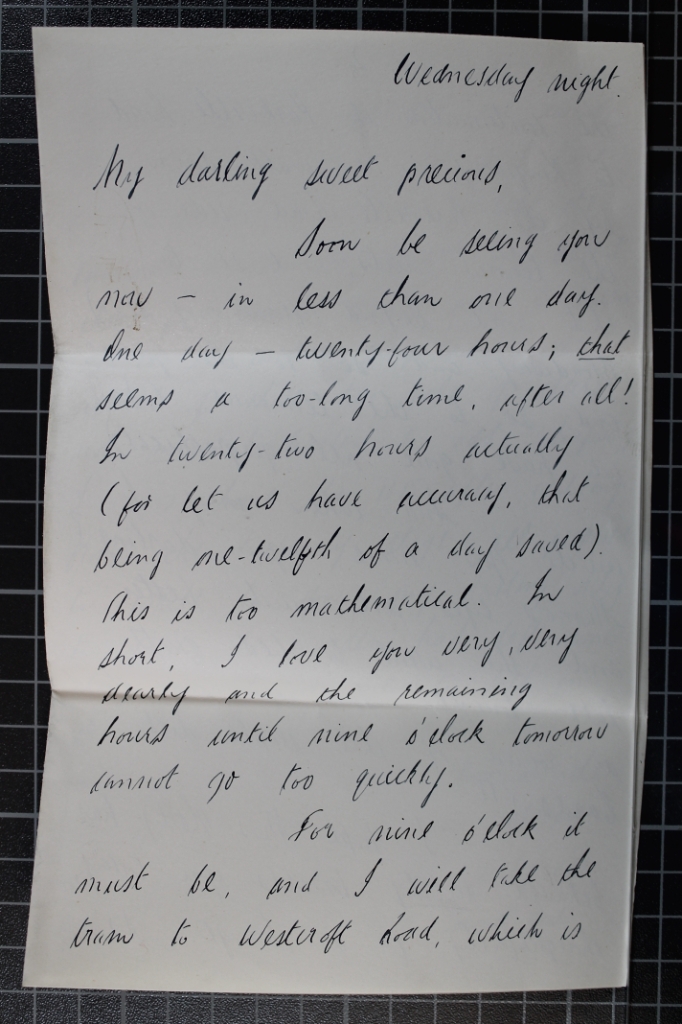 Wednesday night.
My darling sweet precious,
Soon be seeing you
now — in less than one day.
One day — twenty-four hours; that
seems a too-long time, after all!
In twenty-two hours actually
(for let us have accuracy, that
being one-twelfth of a day saved).
This is too mathematical. In
short, I love you very, very
dearly and the remaining
hours until nine o'clock tomorrow
cannot go too quickly.
For nine o'clock it
must be, and I will take the
tram to Westcroft Road, which is